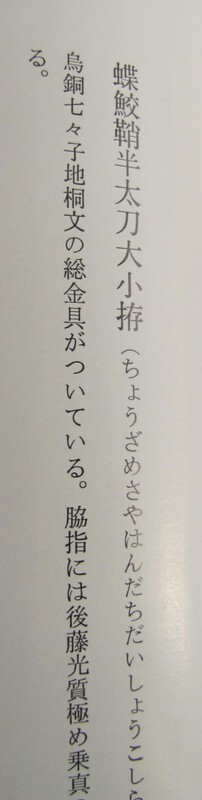 蝶鮫鞘半太刀大小拵（ちょうざめさやはんだちだいしょうこしら
烏銅七々子地桐文の総金具がついている。脇指には後藤光質極め乗真
る。